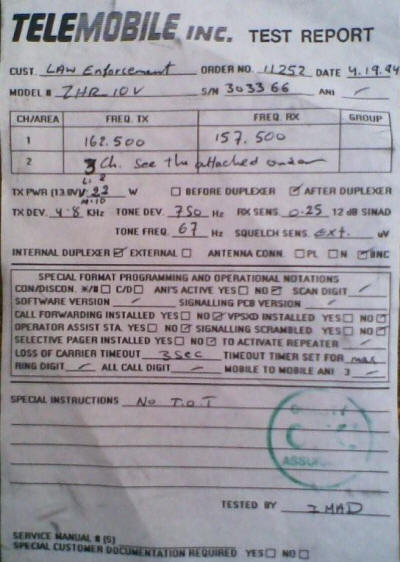 TELEMOBILE, INC. TEST REPORT
CUST. LAW Enforcement ORDER NO. 11252 DATE 4.19.94
MODEL # ZHR 10V S/N 303366 ANI
CH/AREA FREQ. TX FREQ. RX GROUP
1 162.500 157.500
2 3 Ch. See the attached
TX PWR (13.8V) 22 W ☐ BEFORE DUPLEXER ☑ AFTER DUPLEXER
TX DEV. 4.8 KHz TONE DEV. 750 Hz RX SENS. 0.25 12 dB SINAD
TONE FREQ. 67 Hz SQUELCH SENS. Ext. uV
INTERNAL DUPLEXER ☑ EXTERNAL ☐ ANTENNA CONN. ☐PL ☐N ☑BNC
SPECIAL FORMAT PROGRAMMING AND OPERATIONAL NOTATIONS
CON/DISCON. */#☐ C/D☐ ANI'S ACTIVE YES☐ NO☑ SCAN DIGIT
SOFTWARE VERSION SIGNALLING PCB VERSION
CALL FORWARDING INSTALLED YES☐ NO☑ VPSXD INSTALLED YES☐ NO☑
OPERATOR ASSIST STA. YES☐ NO☑ SIGNALLING SCRAMBLED YES☐ NO☑
SELECTIVE PAGER INSTALLED YES☐ NO☑ TO ACTIVATE REPEATER
LOSS OF CARRIER TIMEOUT 3 sec TIMEOUT TIMER SET FOR max
RING DIGIT ALL CALL DIGIT MOBILE TO MOBILE ANI 3
SPECIAL INSTRUCTIONS NO T.O.T
TESTED BY IMAD
SERVICE MANUAL # (S)
SPECIAL CUSTOMER DOCUMENTATION REQUIRED YES☐ NO☐